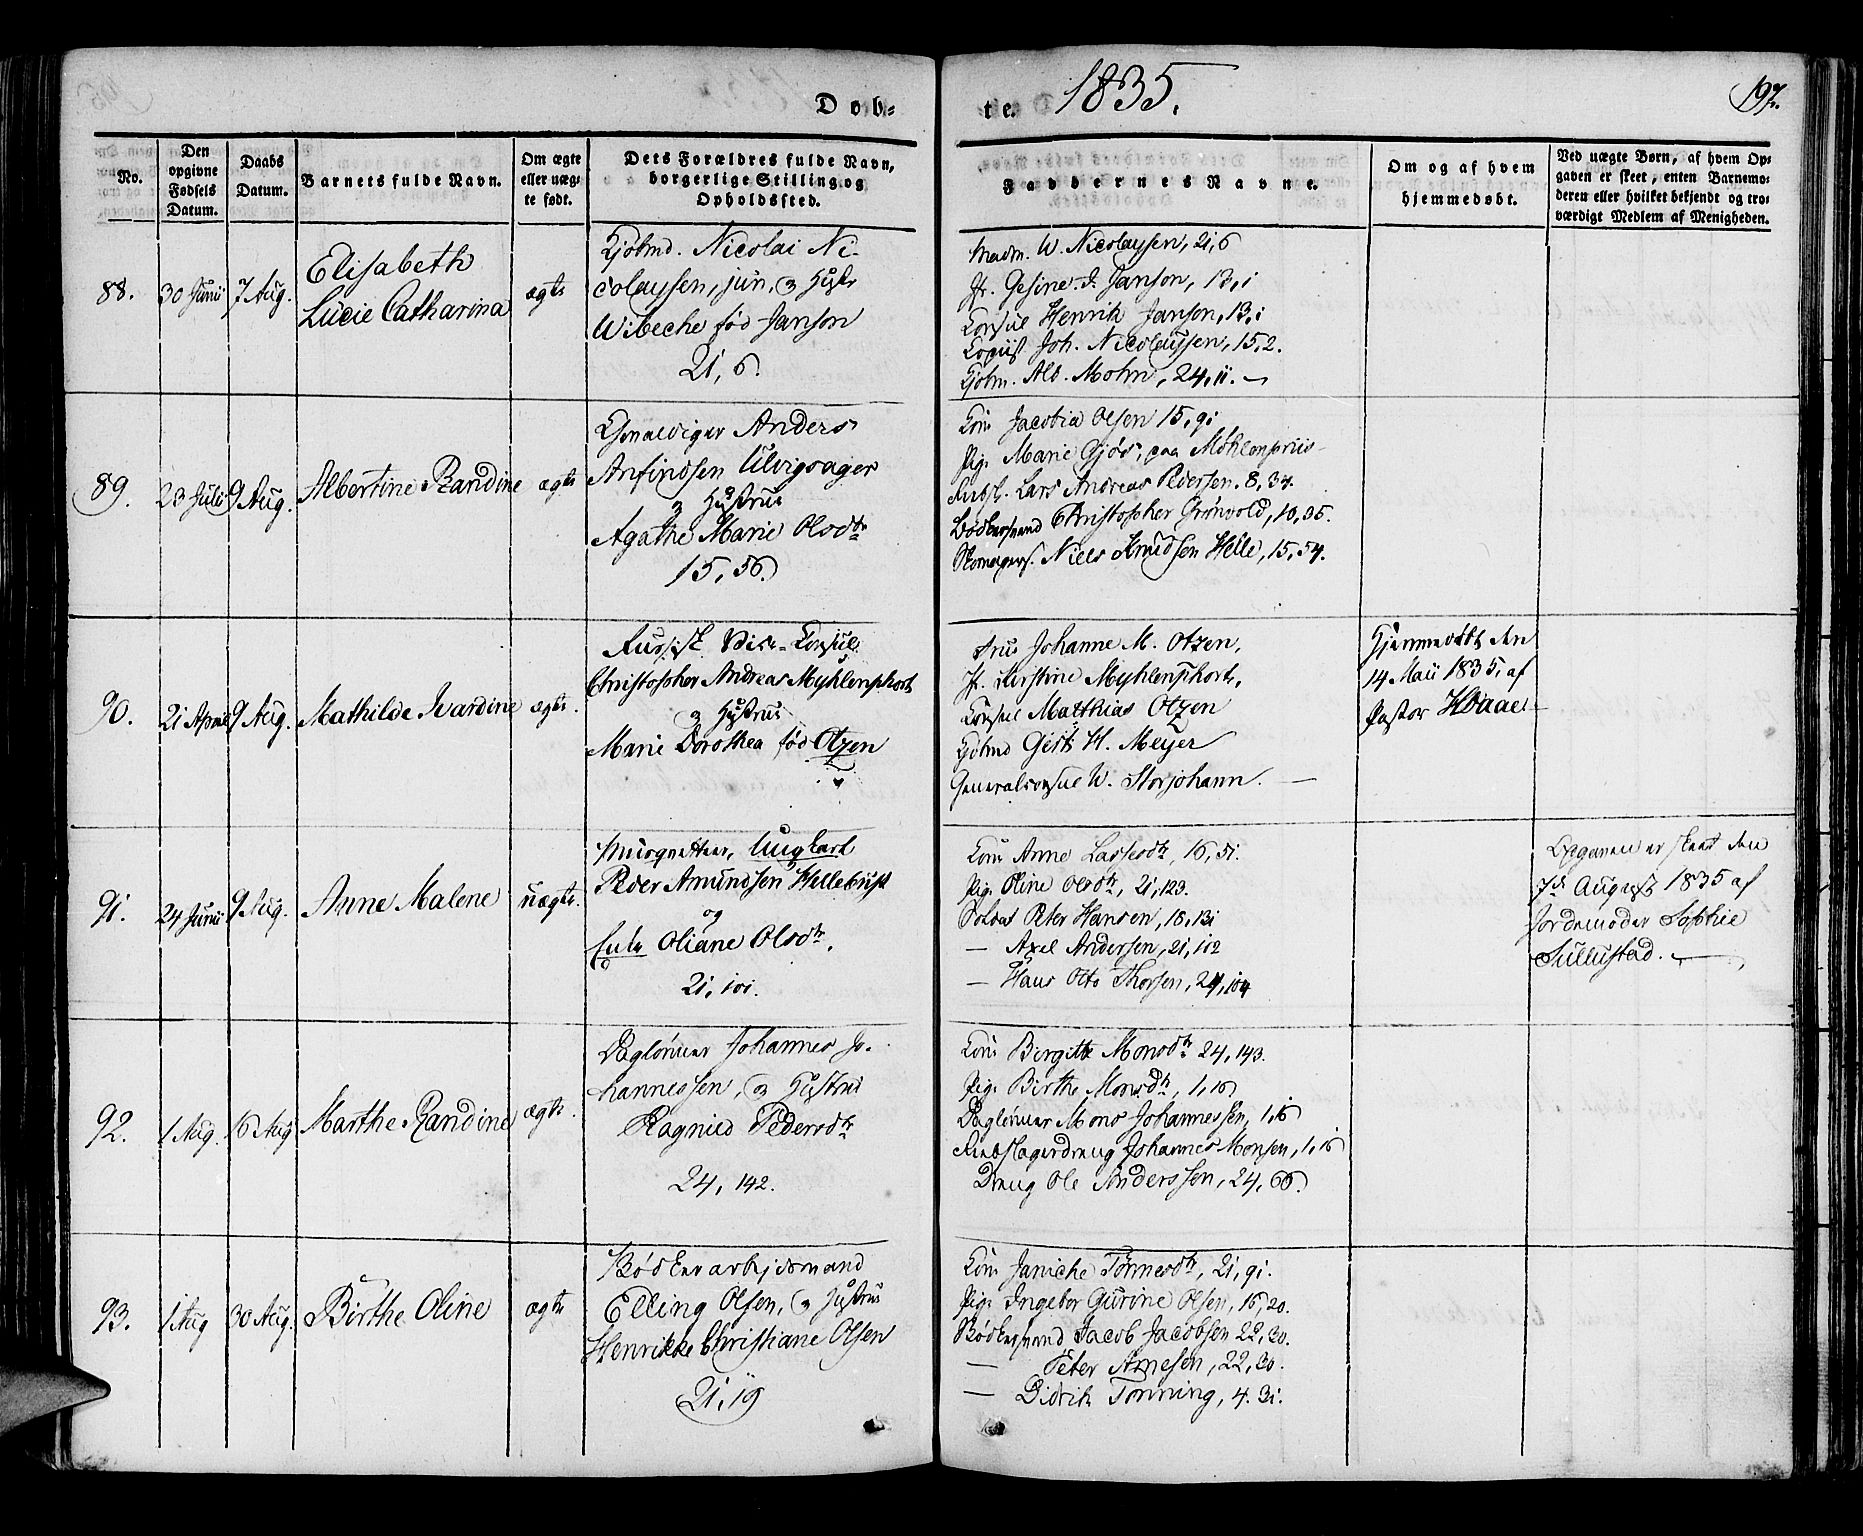 Døb-
te. 1835.
197.
No.
Den opgivne Fødsels Datum.
Daabs Datum.
Barnets fulde Navn.
Om ægte eller uæg-te født.
Dets Forældres fulde Navn, borgerlige Stilling og Opholdssted.
Faddernes Navne.
Om og af hvem hjemmedøbt.
Ved uægte Børn, af hvem Op-gaven er skeet, enten Barnemo-deren eller hvilket bekjendt og tro-værdigt Medlem af Menigheden.
88.
30 Junii
7 Aug.
Elisabeth
Lucie Catharina
ægte
Kjøbmd. Nicolai Ni-
colaysen, jun, og Hust:
Wibeche fød Janson
21, 6.
Madm. W. Nicolaysen, 21, 6
Jfr. Gesine J. Janson, 13, 1
Consul Henrik Janson, 13, 1
Copiist Joh. Nicolaysen, 15, 2.
Kjøbm. Alb. Mohn, 24, 11.
89.
23 Julii
9 Aug.
Albertine Randine
ægte
Anders
Anfindsen Ulvigsager
og Hustrue
Agathe Marie Olsdtr
15, 56.
Kone Jacobia Olsen 15, 91
Pige Marie Gjøs, paa Møhlenpriis
Lars Andreas Pedersen. 8, 34.
Bødkersvend Christopher Grønvold, 10, 35.
Skomagers. Niels Knudsen Helle, 15, 54.
90.
21 April
9 Aug.
Mathilde Ivardine
ægte.
Russisk Vice-Consul
Christopher Andreas Myhlenphort
og Hustrue
Marie Dorothea fød Otzen
Frue Johanne M. Otzen,
Jfr. Kirstine Myhlenphort,
Consul Matthias Otzen
Kjøbmd Gert H. Meyer
Generalconsul W. Storjohann.
Hjemmedøbt den
14 Maii 1835, af
Pastor
91.
24 Junii
9 Aug.
Anne Malene
uægte.
Musqueteer, Ungkarl
Peder Amundsen Hellebust
og
Enke Oliane Olsdtr.
21, 101.
Kone Anne Lassesdtr, 16, 51.
Pige Oline Olsdtr, 21, 123.
Soldat Peter Hansen, 18, 131
— Axel Andersen, 21, 112
— Hans Otto Thorsen, 24, 104
Opgaven er skeet den
7de August 1835 af
Jordemoder Sophie
Sullustad.
92.
1 Aug.
16 Aug
Marthe Randine
ægte.
Dagløner Johannes Jo-
hannessen, og Hustrue
Ragnild Pedersdtr
24, 142.
Kone Birgitte Monsdtr 24, 143.
Pige Birthe Monsdtr, 1, 16
Dagløner Mons Johannessen, 1, 16
Reebslagerdreng Johannes Monsen, 1, 16
Dreng Ole Anderssen, 24, 66.
93.
1 Aug
30 Aug.
Birthe Oline
ægte
Bødkerarbejdsmand
Elling Olsen, og Hustrue
Henrikke Christiane Olsen
21, 19
Kone Janiche Tønnesdtr, 21, 91.
Pige Ingebor Gurine Olsen, 16, 20.
Bødkersvend Jacob Jacobsen 22, 30.
— Peter Arnesen, 22, 30.
— Didrik Tønning, 4. 31.